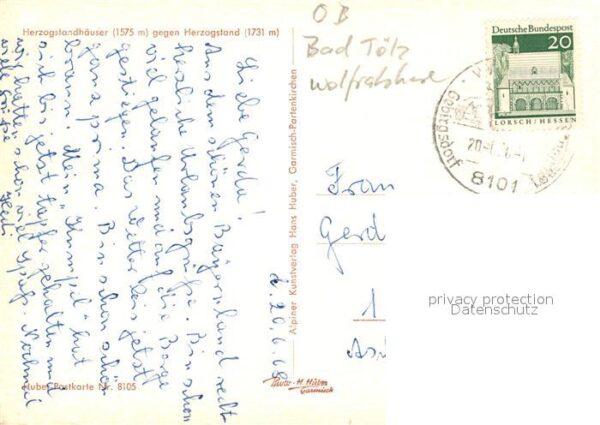 Herzogstandhäuser (1575 m) gegen Herzogstand (1731 m)
OB
Bad Tölz
wolfratshause
Deutsche Bundespost
20
LORSCH/HESSEN
Gebirgsdorf
8101
d. 20.6.68
Liebe Gerda!
Aus dem schönen Bayernland recht
herzliche Urlaubsgrüße. Bin schon
viel gelaufen und auf die Berge
gestiegen. Das Wetter bis jetzt
ganz prima. Bin schon schön
braun. Mein "Kumpel" hat
sich bis jetzt tapfer gehalten und
wir hatten schon viel Spaß. Nochmal
viele Grüße
Alpiner Kunstverlag Hans Huber, Garmisch-Partenkirchen
Frau
Gerd
1
privacy protection
Datenschutz
Huber-Postkarte Nr. 8105
Photo-H. Huber
Garmisch